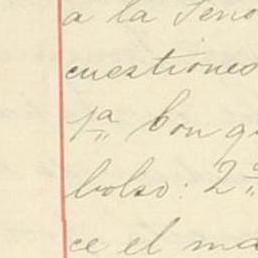 a la Seño
cuestiones
1ª Con q
bolso: 2ª
ce el ma